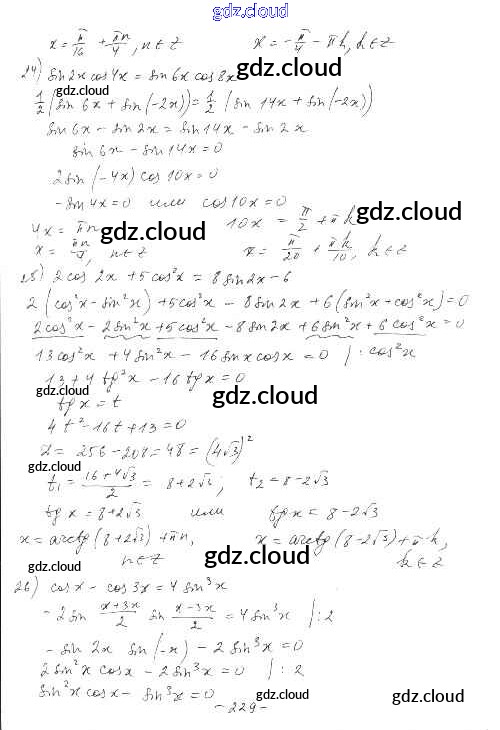 gdz.cloud
x = π/16 + πn/4, n ∈ Z        x = -π/4 - πk, k ∈ Z
24) sin 2x cos 4x = sin 6x cos 8x
gdz.cloud
1/2 (sin 6x + sin(-2x)) = 1/2 (sin 14x + sin(-2x))
gdz.cloud
sin 6x - sin 2x = sin 14x - sin 2x
sin 6x - sin 14x = 0
2 sin(-4x) cos 10x = 0
- sin 4x = 0 или cos 10x = 0
4x = πn        10x = π/2 + πk
gdz.cloud gdz.cloud
x = πn/, n ∈ Z        x = π/20 + πk/10, k ∈ Z
25) 2 cos 2x + 5 cos²x = 8 sin 2x - 6
2 (cos²x - sin²x) + 5 cos²x - 8 sin 2x + 6 (sin²x + cos²x) = 0
2cos²x - 2 sin²x + 5 cos²x - 8 sin 2x + 6 sin²x + 6 cos²x = 0
13 cos²x + 4 sin²x - 16 sin x cos x = 0 | : cos²x
13 + 4 tg²x - 16 tg x = 0
gdz.cloud
tg x = t
gdz.cloud gdz.cloud
4t² - 16t + 13 = 0
D = 256 - 208 = 48 = (4√3)²
gdz.cloud
t₁ = (16 + 4√3)/2 = 8 + 2√3, t₂ = 8 - 2√3
gdz.cloud
tg x = 8 + 2√3 или tg x = 8 - 2√3
x = arctg (8 + 2√3) + πn,        x = arctg (8 - 2√3) + πk,
n ∈ Z        k ∈ Z
gdz.cloud gdz.cloud
26) cos x - cos 3x = 4 sin³x
- 2 sin (x+3x)/2 sin (x-3x)/2 = 4 sin³x | : 2
gdz.cloud
- sin 2x sin (-x) - 2 sin³x = 0
2 sin²x cos x - 2 sin³x = 0 | : 2
gdz.cloud
sin²x cos x - sin³x = 0
gdz.cloud
- 229 -